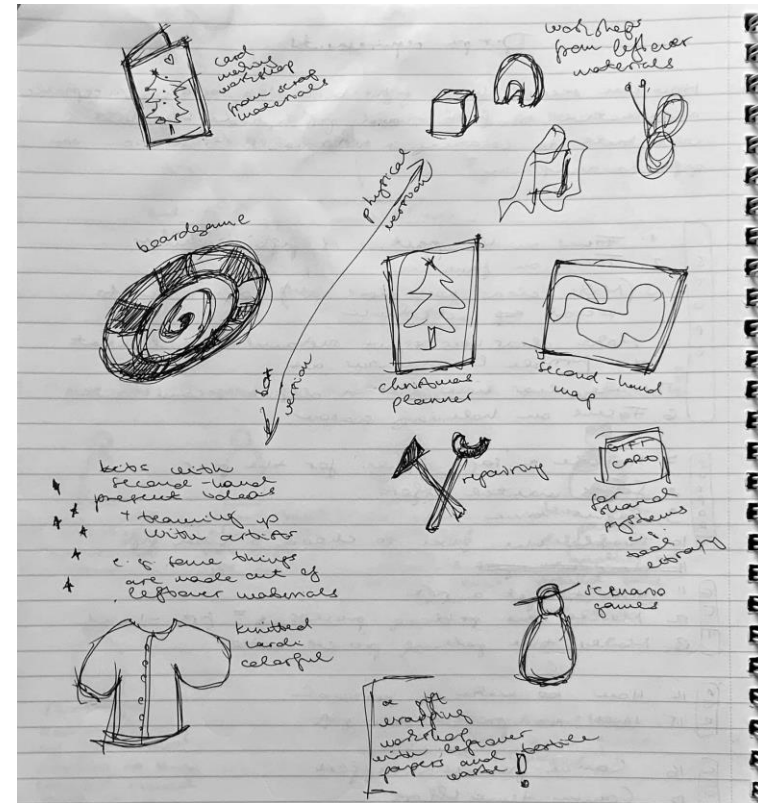 card
making
workshop
from scrap
materials
workshops
from leftover
materials
physical
version
boardgame
version
christmas
planner
second-hand
map
kits with
second-hand
present ideas
+ teaming up
with artists
e.g. some things
are made out of
leftover materials
repairing
GIFT
CARD
for
shared
systems
e.g.
tool
library
scenario
games
knitted
cardi
colorful
a gift
wrapping
workshop
with leftover
papers and textile
waste!